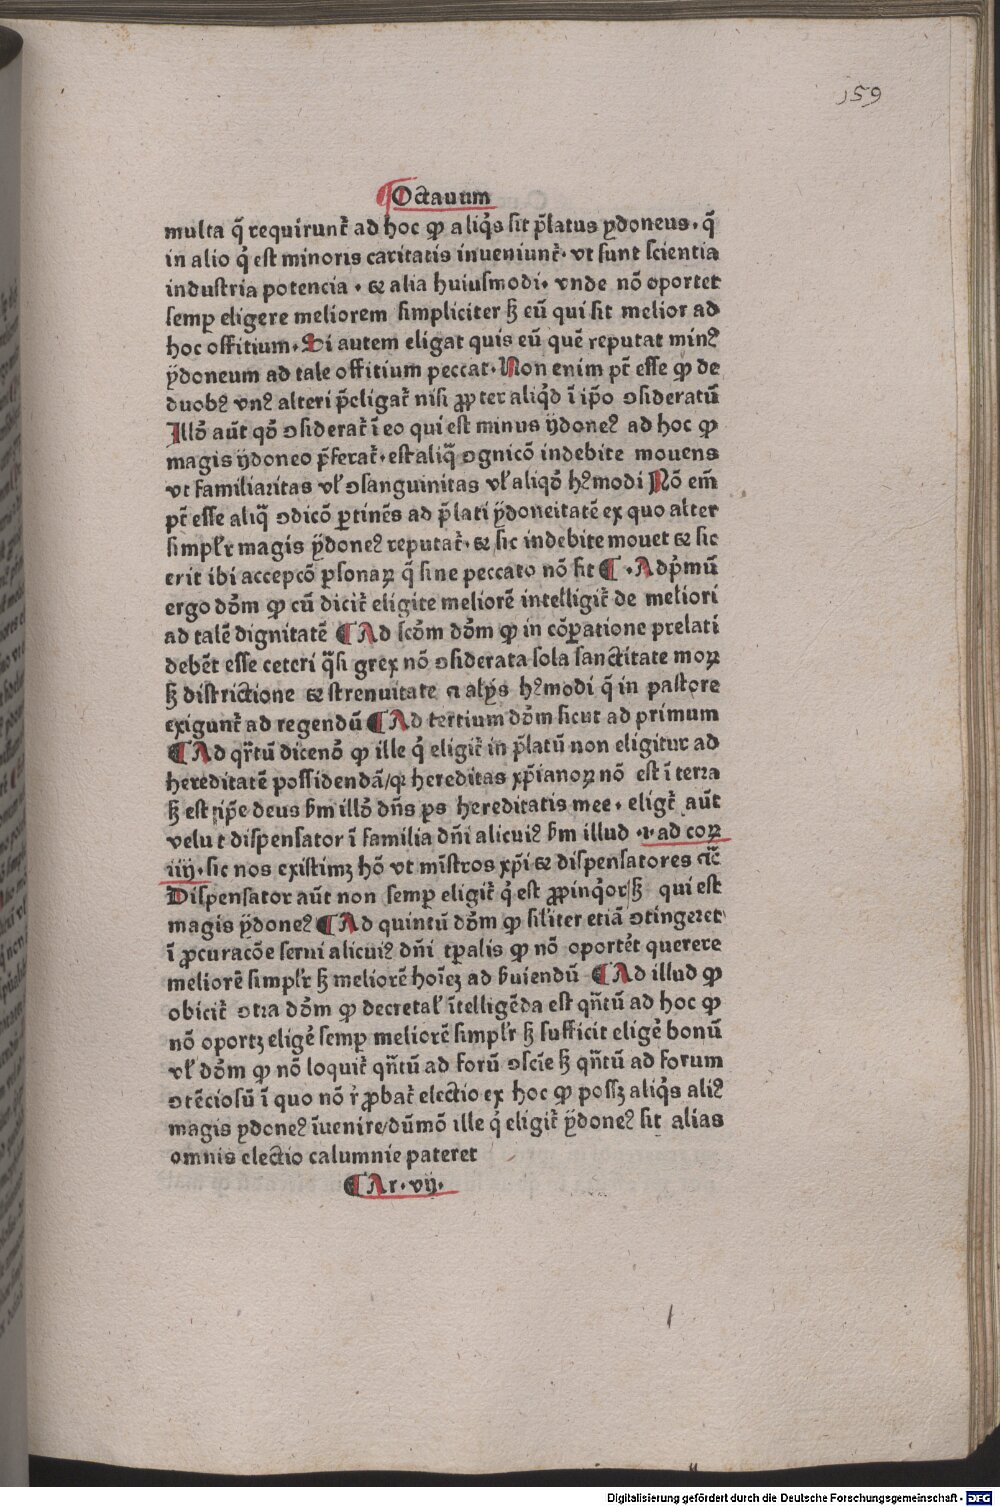 159
Octauum
multa q̄ requirunt᷑ ad hoc ꝙ aliq̇s sit p̄latus ydoneus· q̄
in alio q̇ est minoris caritatis inueniunt᷑· vt sunt scientia
industria potencia · ⁊ alia huiusmodi· vnde nō oportet
semꝑ eligere meliorem simpliciter sꝫ eū qui sit melior ad
hoc offitium· Si autem eligat quis eū quē reputat minꝰ
ydoneum ad tale offitium peccat· Non enim pt̄ esse ꝙ de
duobꝰ vnꝰ alteri p̄eligat᷑ nisi ꝓpter aliq̇d ī ip̄o ꝯsideratū
Illō aūt qō ꝯsiderat᷑ ī eo qui est minus ydoneꝰ ad hoc ꝙ
magis ydoneo p̄ferat᷑· est aliq̄ ꝯgnicō indebite mouens
vt familiaritas vł ꝯsanguinitas vł aliqō hꝰmodi Nō em̄
pt̄ esse aliq̄ ꝯdicō ꝑtinēs ad p̄lati ydoneitatē ex quo alter
simpłr magis ydoneꝰ reputat᷑· ⁊ sic indebite mouet ⁊ sic
erit ibi accepcō ꝑsonaꝝ q̄ sine peccato nō fit ¶ · Ad p̄mū
ergo dōm ꝙ cū dicit᷑ eligite meliorē intelligit᷑ de meliori
ad talē dignitatē ¶ Ad scōm dōm ꝙ in cōꝑatione prelati
debēt esse ceteri q̄si grex nō ꝯsiderata sola sanctitate moꝝ
sꝫ districtione ⁊ strenuitate a alijs hꝰmodi q̄ in pastore
exigunt᷑ ad regendū ¶ Ad tertium dōm sicut ad primum
¶ Ad qr̄tū dicenō ꝙ ille q̇ eligit᷑ in p̄latū non eligitur ad
hereditatē possidendā/qꝛ hereditas xp̄ianoꝝ nō est ī terra
sꝫ est ip̄e deus ẜm illō dn̄s ꝑs hereditatis mee· eligt᷑ aūt
velut dispensator ī familia dn̄i alicuiꝰ ẜm illud ·i· ad coꝝ
iiij· sic nos existimꝫ hō vt mīstros xp̄i ⁊ dispensatores ⁊c̄
Dispensator aūt non semꝑ eligit᷑ q̇ est ꝓpinq̇or/sꝫ qui est
magis ydoneꝰ ¶ Ad quintū dōm ꝙ siłiter etiā ꝯtingeret
ī ꝓcuracōe serui alicuiꝰ dn̄i tꝑalis ꝙ nō oportet querere
meliorē simpłr sꝫ meliorē hoīcꝫ ad ẜuiendū ¶ Ad illud ꝙ
obicit᷑ ꝯtra dōm ꝙ decretał ītelligēda est qn̄tū ad hoc ꝙ
nō oportꝫ eligē semꝑ meliorē simpłr sꝫ sufficit eligē bonū
vł dōm ꝙ nō loquit᷑ qn̄tū ad forū ꝯscīe sꝫ qn̄tū ad forum
ꝯtēciosū ī quo nō r̄ꝓbat᷑ electio ex hoc ꝙ possꝫ aliq̇s aliꝰ
magis ydoneꝰ īuenire/dūmō ille q̇ eligit᷑ ydoneꝰ sit alias
omnis electio calumnie pateret
¶ Ar· vij·
Digitalisierung gefördert durch die Deutsche Forschungsgemeinschaft - DFG